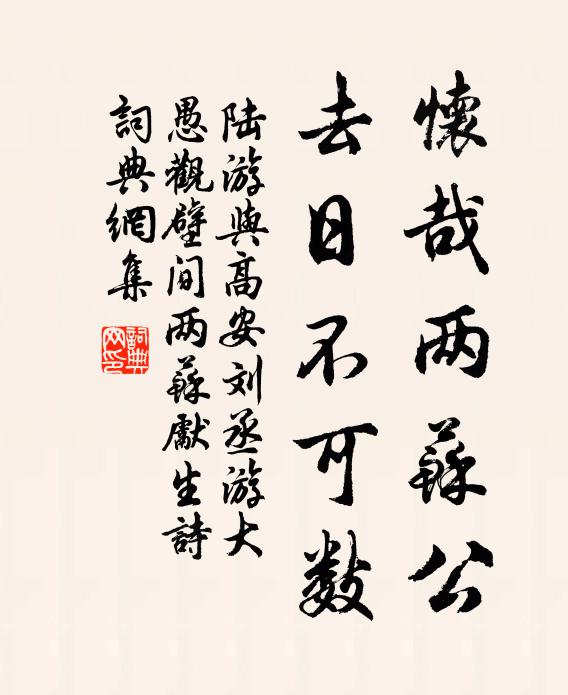 懷哉两蘇公
去日不可数
陆游與高安刘丞游大
愚觀壁间两蘇獻生詩
詞典網集
詞典
网印